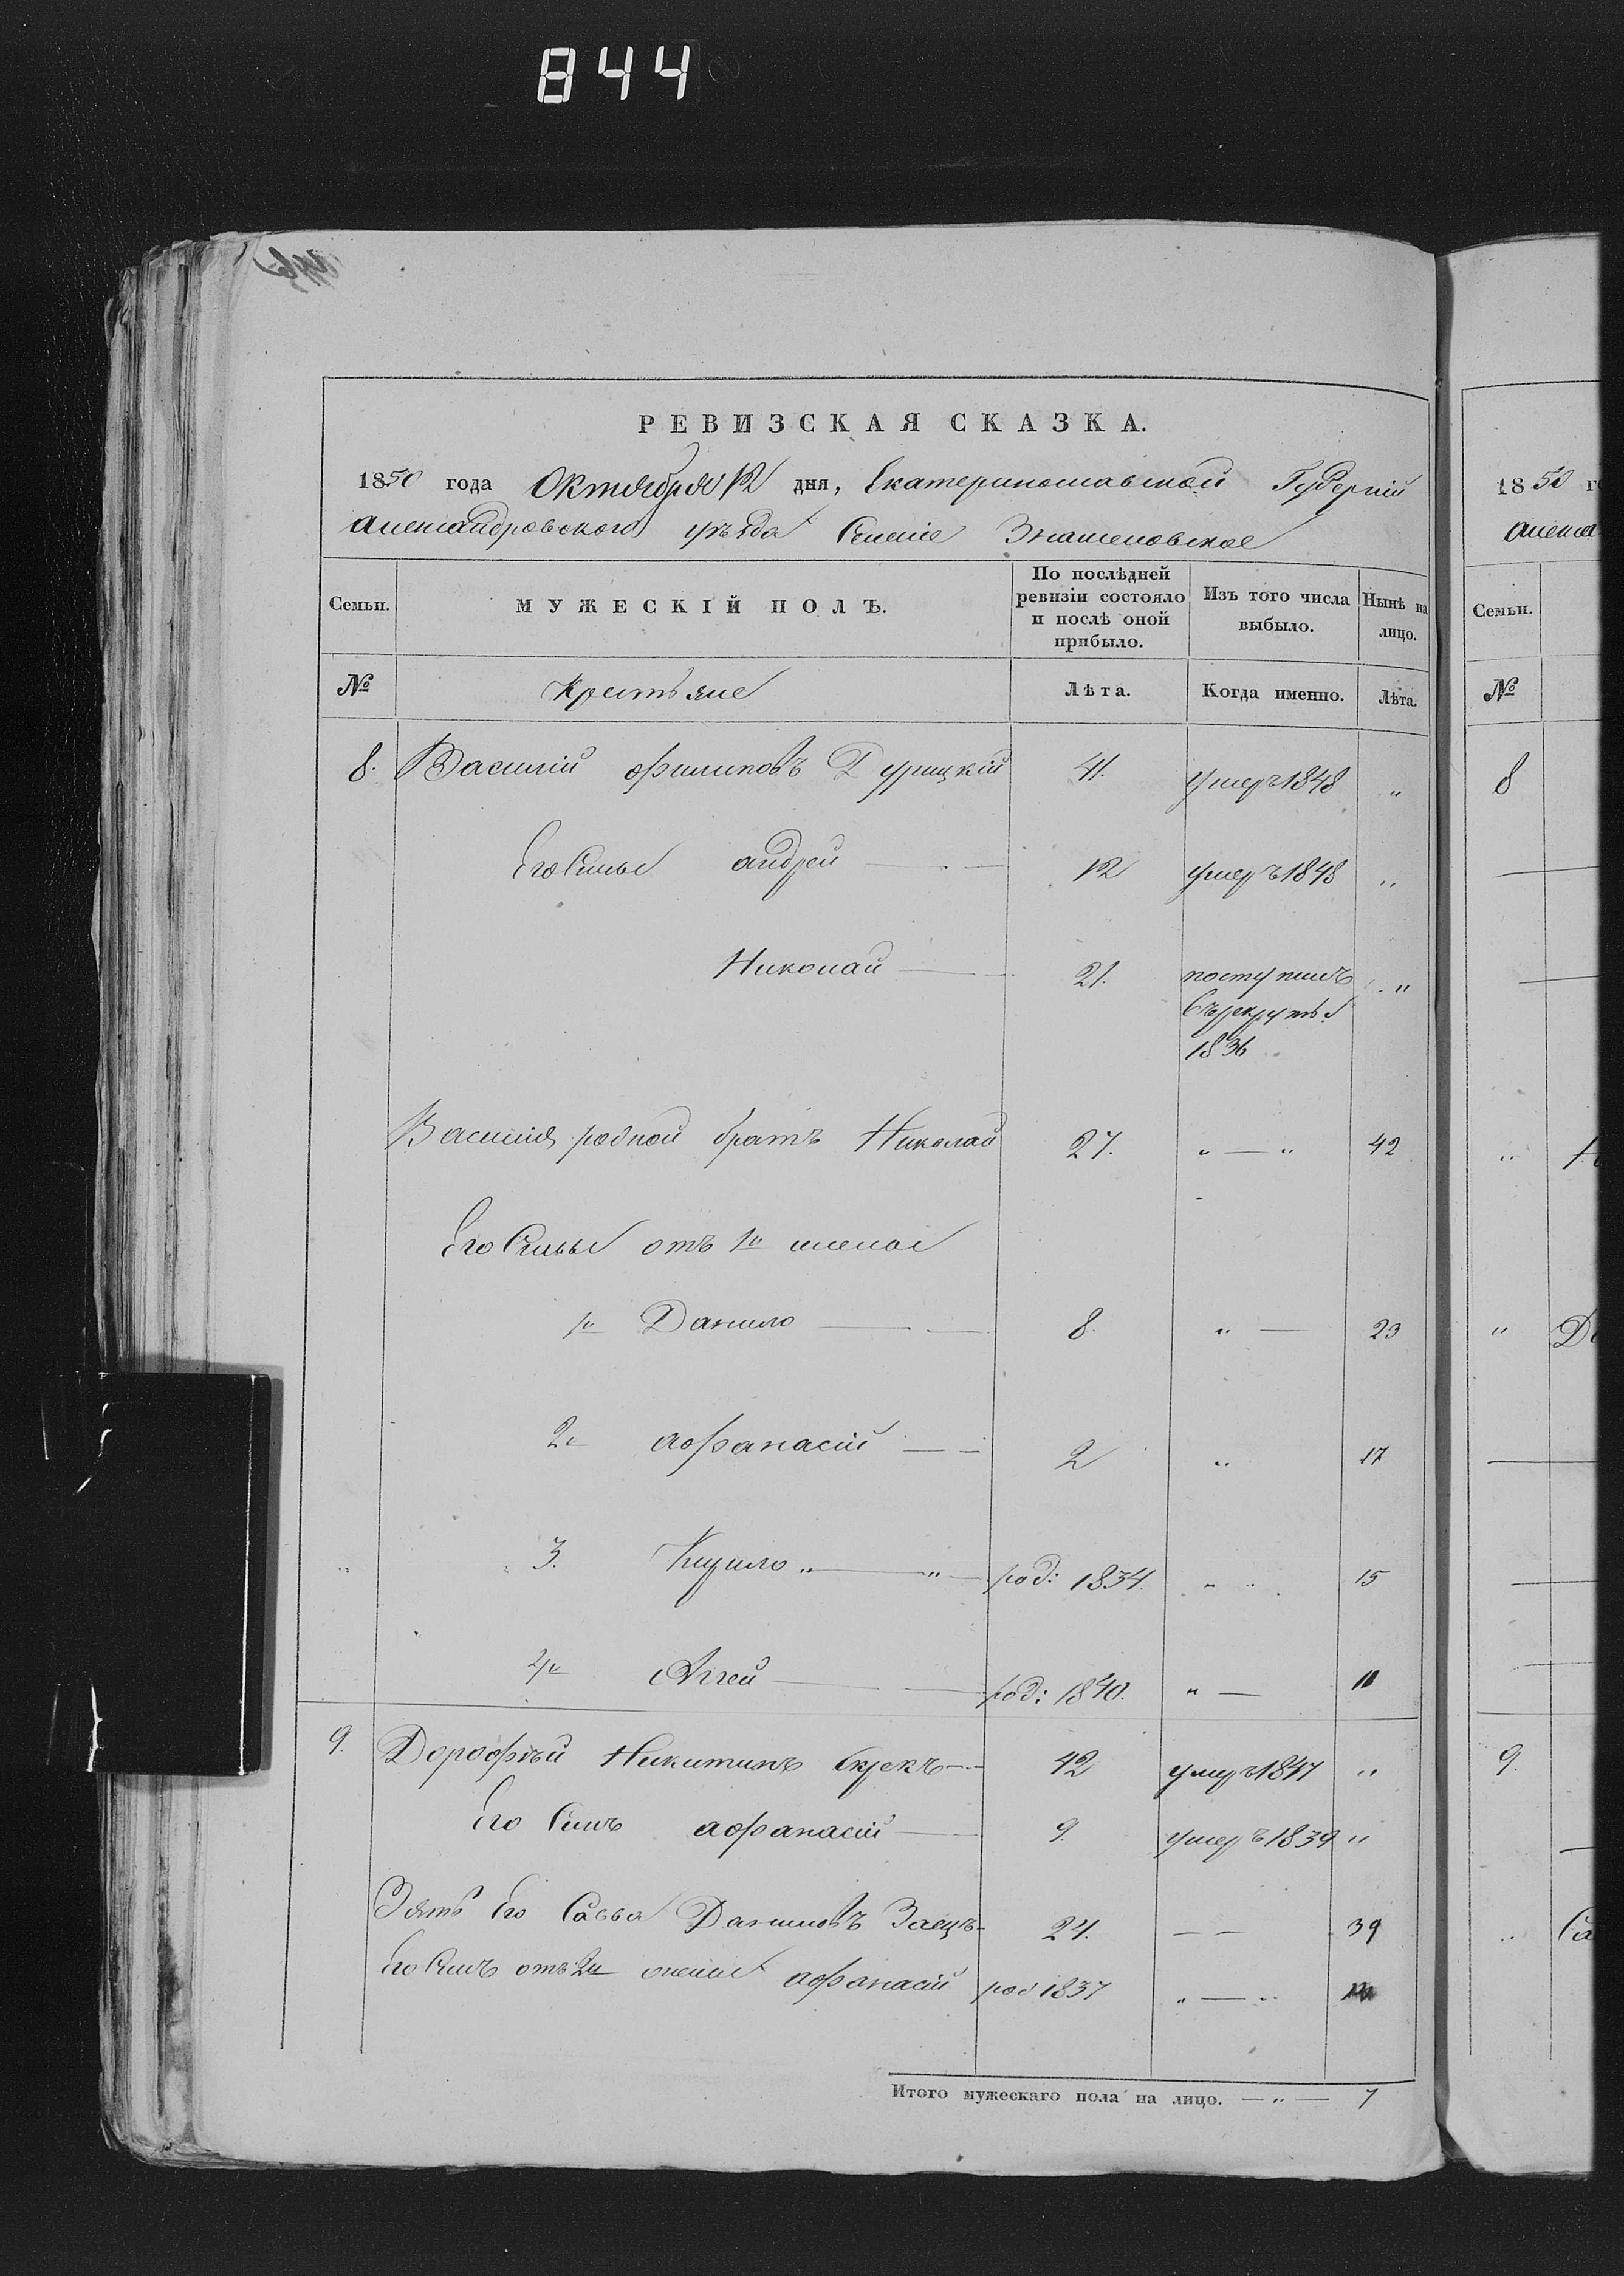 844
РЕВИЗСКАЯ СКАЗКА.
1850 года Октября 12 дня, Екатеринославской Губерніи
Александровского уѣзда Селеніе Знаменовское
Семьи. МУЖЕСКІЙ ПОЛЪ. По послѣдней ревизіи состояло и послѣ оной прибыло. Изъ того числа выбыло. Нынѣ на лицо.
№ Крестьяне Лѣта. Когда именно. Лѣта.
8. Василій Филиповъ Дурицкій 41. умеръ 1848 „
Его Сыны Андрей 12 умеръ 1848 „
Николай 21. поступилъ „
въ рекруты
1836
Василія родной братъ Николай 27. „ — „ 42
Его Сыны от 1й жены
1й Данило 8. „ — 23
2й Афанасій 2 „ 17
3. Кирило „ — „ род: 1834. „ „ 15
4й Аггей род: 1840. „ — 11
9. Дорофѣй Никитинъ 42 умеръ 1847 „
Его Сынъ Афанасій 9. умеръ 1839 „
Зять Его Савва Даниловъ Заецъ 24. — — 39
Его Сынъ отъ 2й жены Афанасій род 1837 „ — „
Итого мужескаго пола на лицо. — „ — 7
1850 г
Алекса
Семьи.
№
8
„ Н
„ Да
9.
„ Са